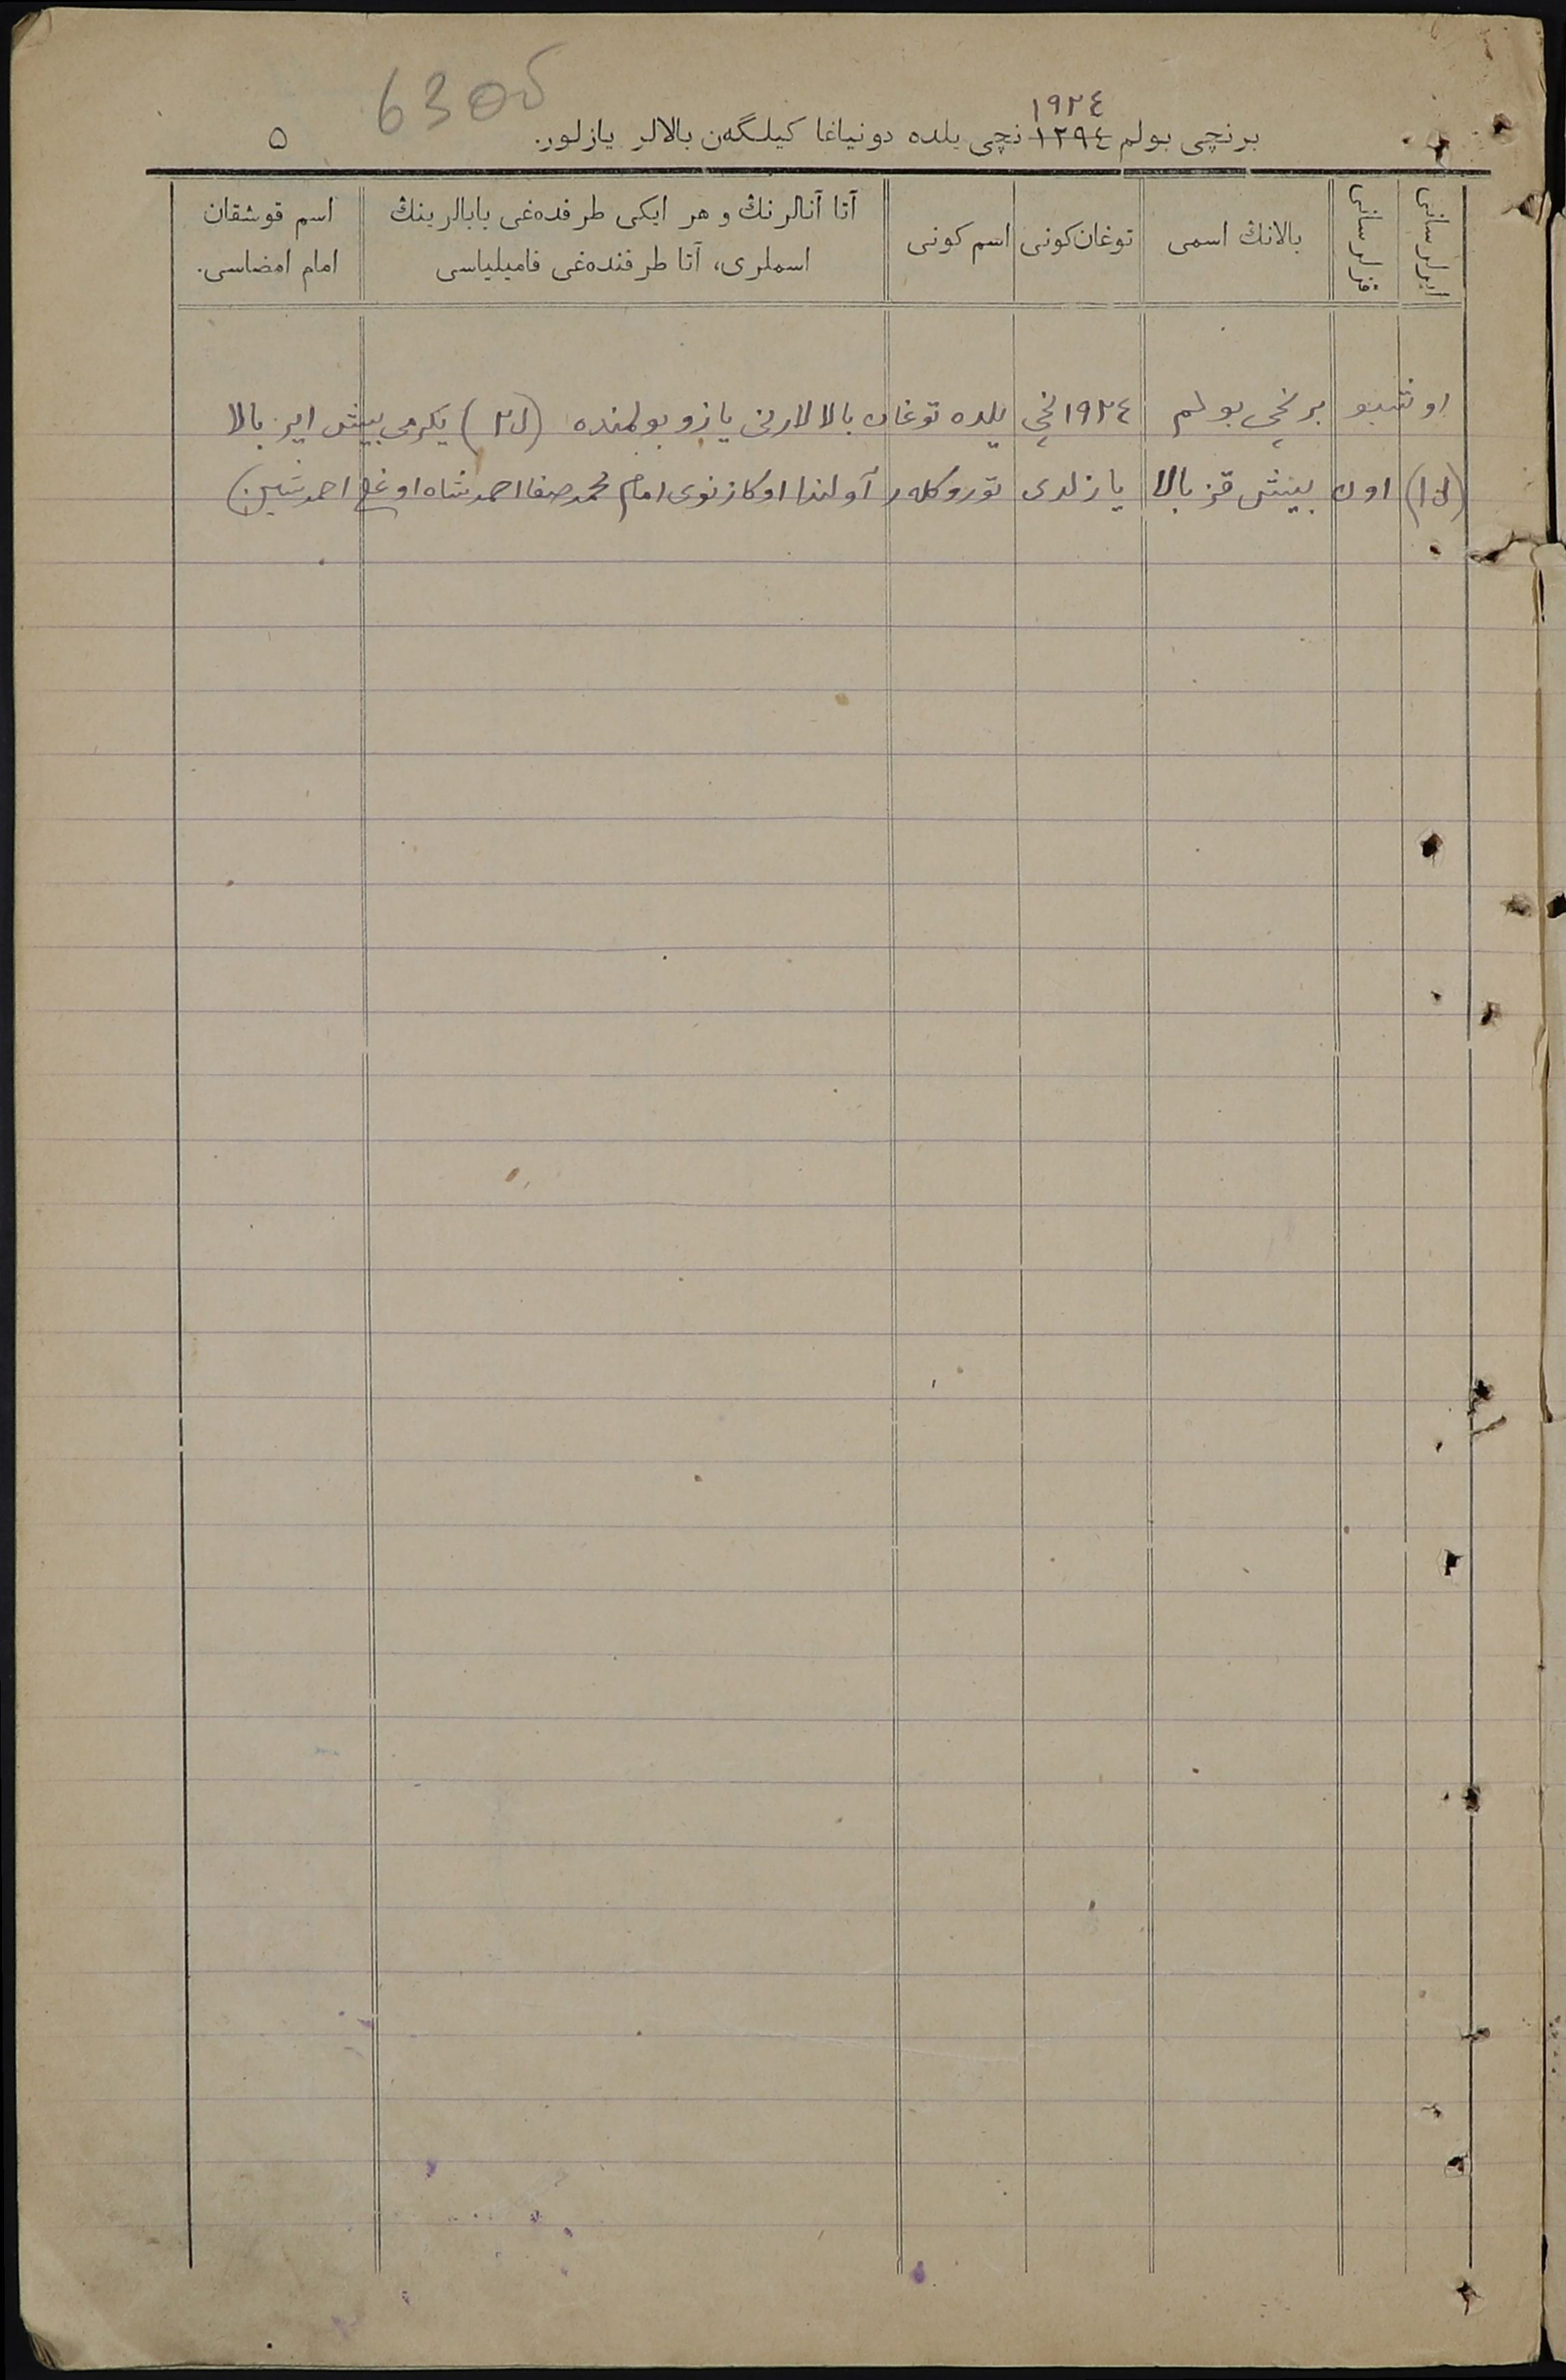 630
١٩٢٤
برنچی بولم ١٢٩٤ نچی یلده دونیاغا کیلگەن بالالر یازلور.
٥
ایرلر سانی
قزلر سانی
بالانڭ اسمی
توغان کونی
اسم کونی
آتا آنالرنڭ و هر ایکی طرفدەغی بابالرینڭ
اسملری، آتا طرفندەغی فامیلیاسی
اسم قوشقان
امام امضاسی.
اوشبو برنچی بولم ١٩٢٤ نچی یلده توغان بالالارنی یازو بولمنده (٢٥) یکرمی بیش ایر بالا
(١٥) اون بیش قز بالا یازلدی توروکلەر آولندا اوکازنوی امام محمدصفا احمدشاه اوغلی احمدشین)